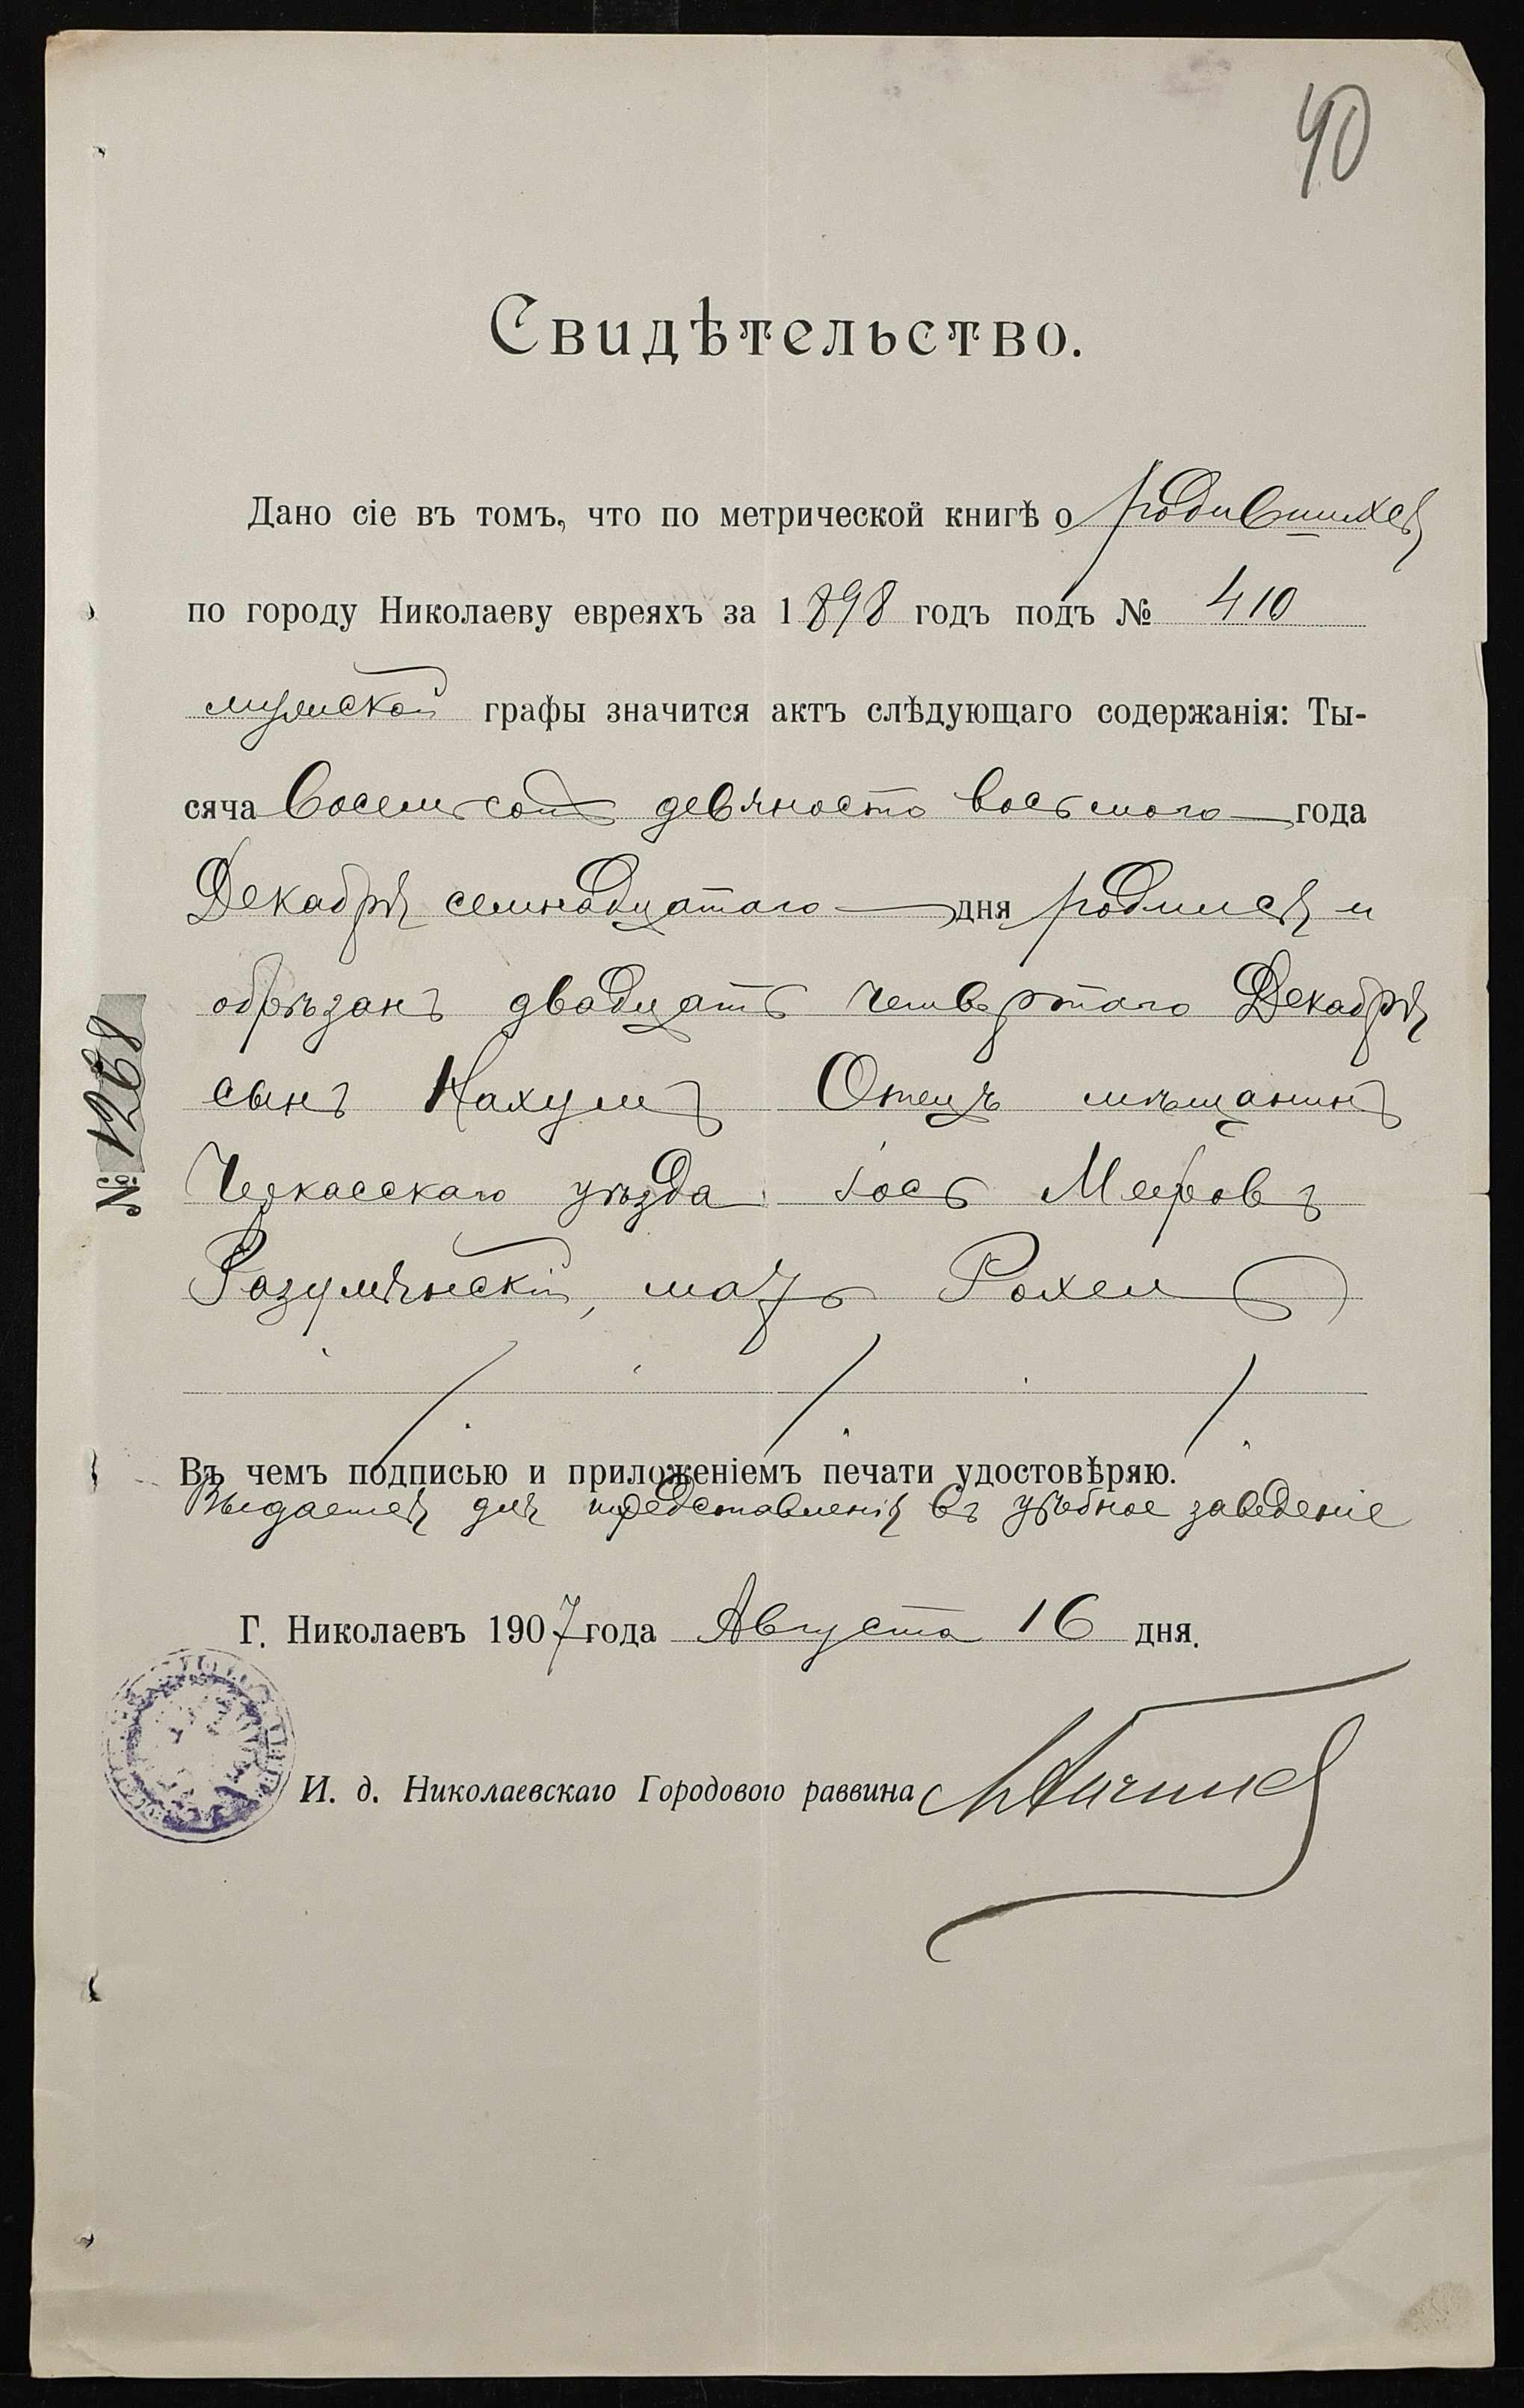 40
Свидѣтельство.
Дано сіе въ томъ, что по метрической книгѣ о родившихся
по городу Николаеву евреяхъ за 1898 годъ подъ № 410
мужской графы значится актъ слѣдующаго содержанія: Ты-
сяча восемьсотъ девяносто восьмого года
Декабря семнадцатаго дня родился и
обрѣзанъ двадцать четвертаго Декабря
сынъ Нахумъ Отецъ мѣщанинъ
Черкасскаго уѣзда Іось Меировъ
Разумянскій, мать Рохель
Въ чемъ подписью и приложеніемъ печати удостовѣряю.
Выдается для представленія въ учебное заведеніе
Г. Николаевъ 1907 года Августа 16 дня.
И. д. Николаевскаго Городового раввина
№ 1268